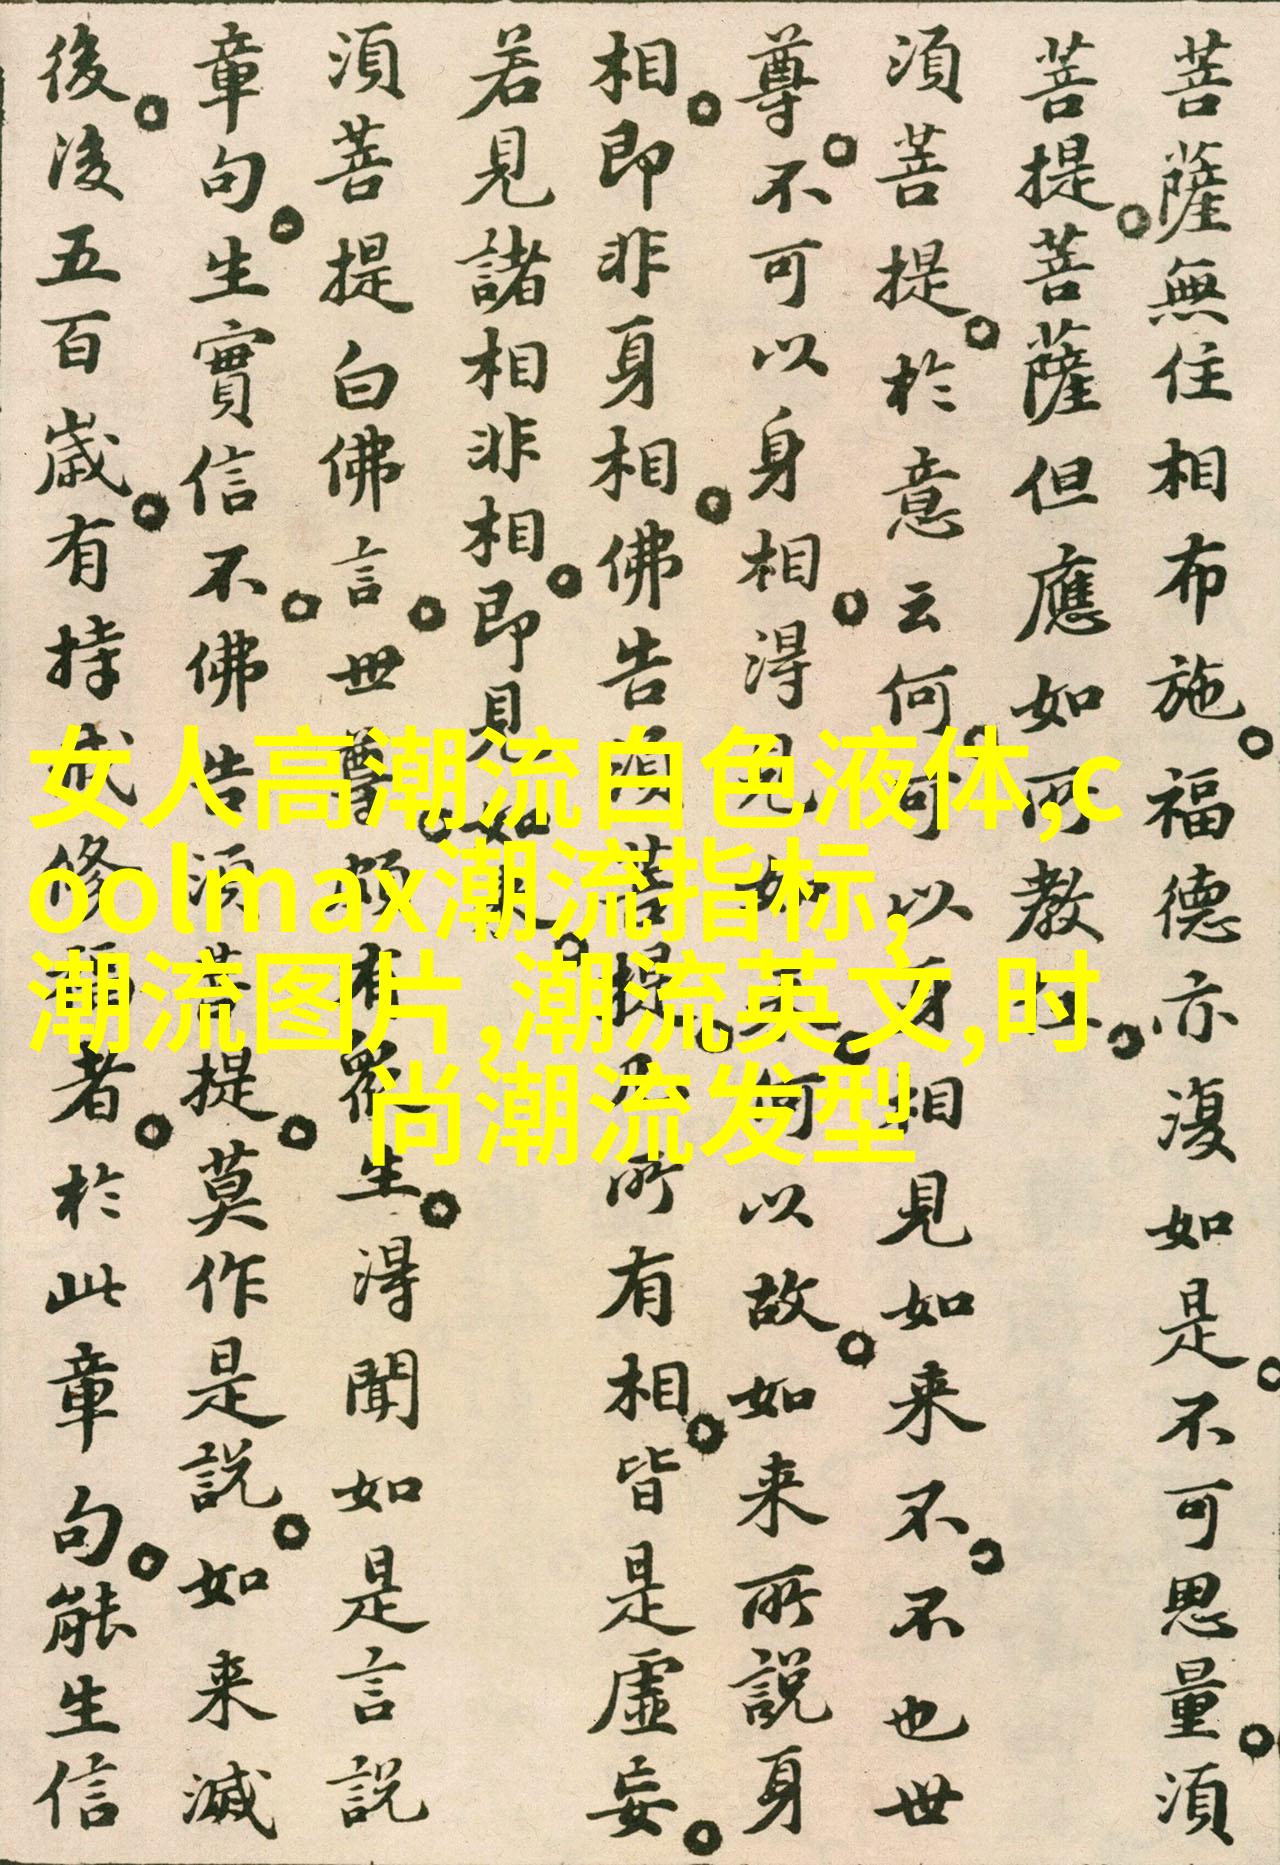 菩薩無住相布施。福德亦復如是。不可思量。須
菩提。菩薩但應如所教住。
須菩提。於意云何。可以身相見如来不。不也世
尊。不可以身相。得見如来。何以故。如来所說身
相。即非身相。佛告須菩提。凡所有相。皆是虛妄。
若見諸相非相。即見如来。
須菩提白佛言。世尊。頗有眾生。得聞如是言說
章句。生實信不。佛告須菩提。莫作是說。如来滅
後。後五百歲。有持戒修福者。於此章句。能生信
女人高潮流白色液体,c
oolmax潮流指标,
潮流图片,潮流英文,时
尚潮流发型